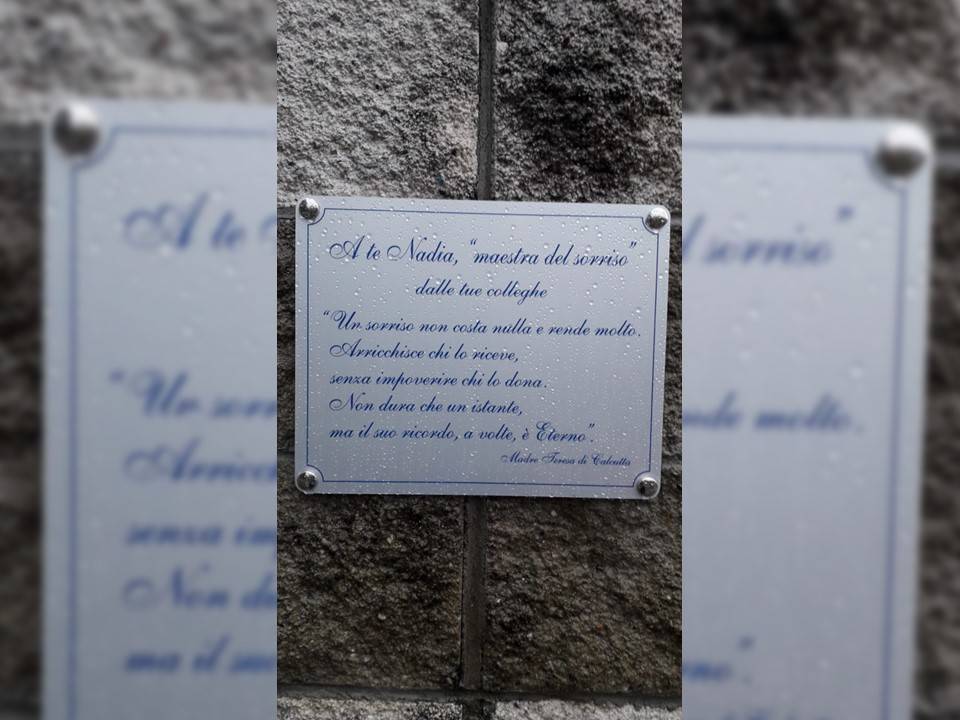 A te Nadia, "maestra del sorriso"
dalle tue colleghe
"Un sorriso non costa nulla e rende molto.
Arricchisce chi lo riceve,
senza impoverire chi lo dona.
Non dura che un istante,
ma il suo ricordo, a volte, è Eterno".
Madre Teresa di Calcutta